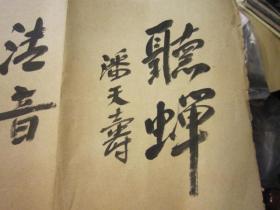 聽蟬
潘天壽
法音